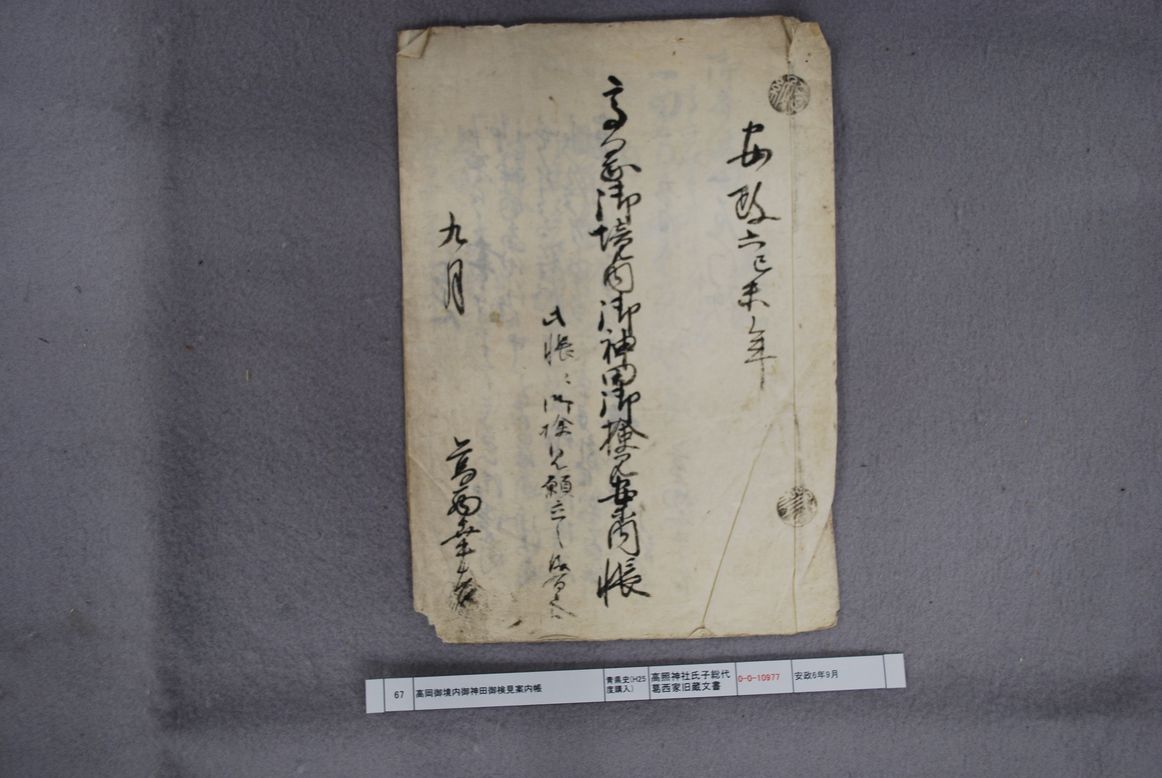 安政六己未年
高岡御境内御神田御検見案内帳
此帳ニ御検見願立之
九月
葛西
67
高岡御境内御神田御検見案内帳
青県史(H25
度購入)
高照神社氏子総代
葛西家旧蔵文書
O-O-10977
安政6年9月